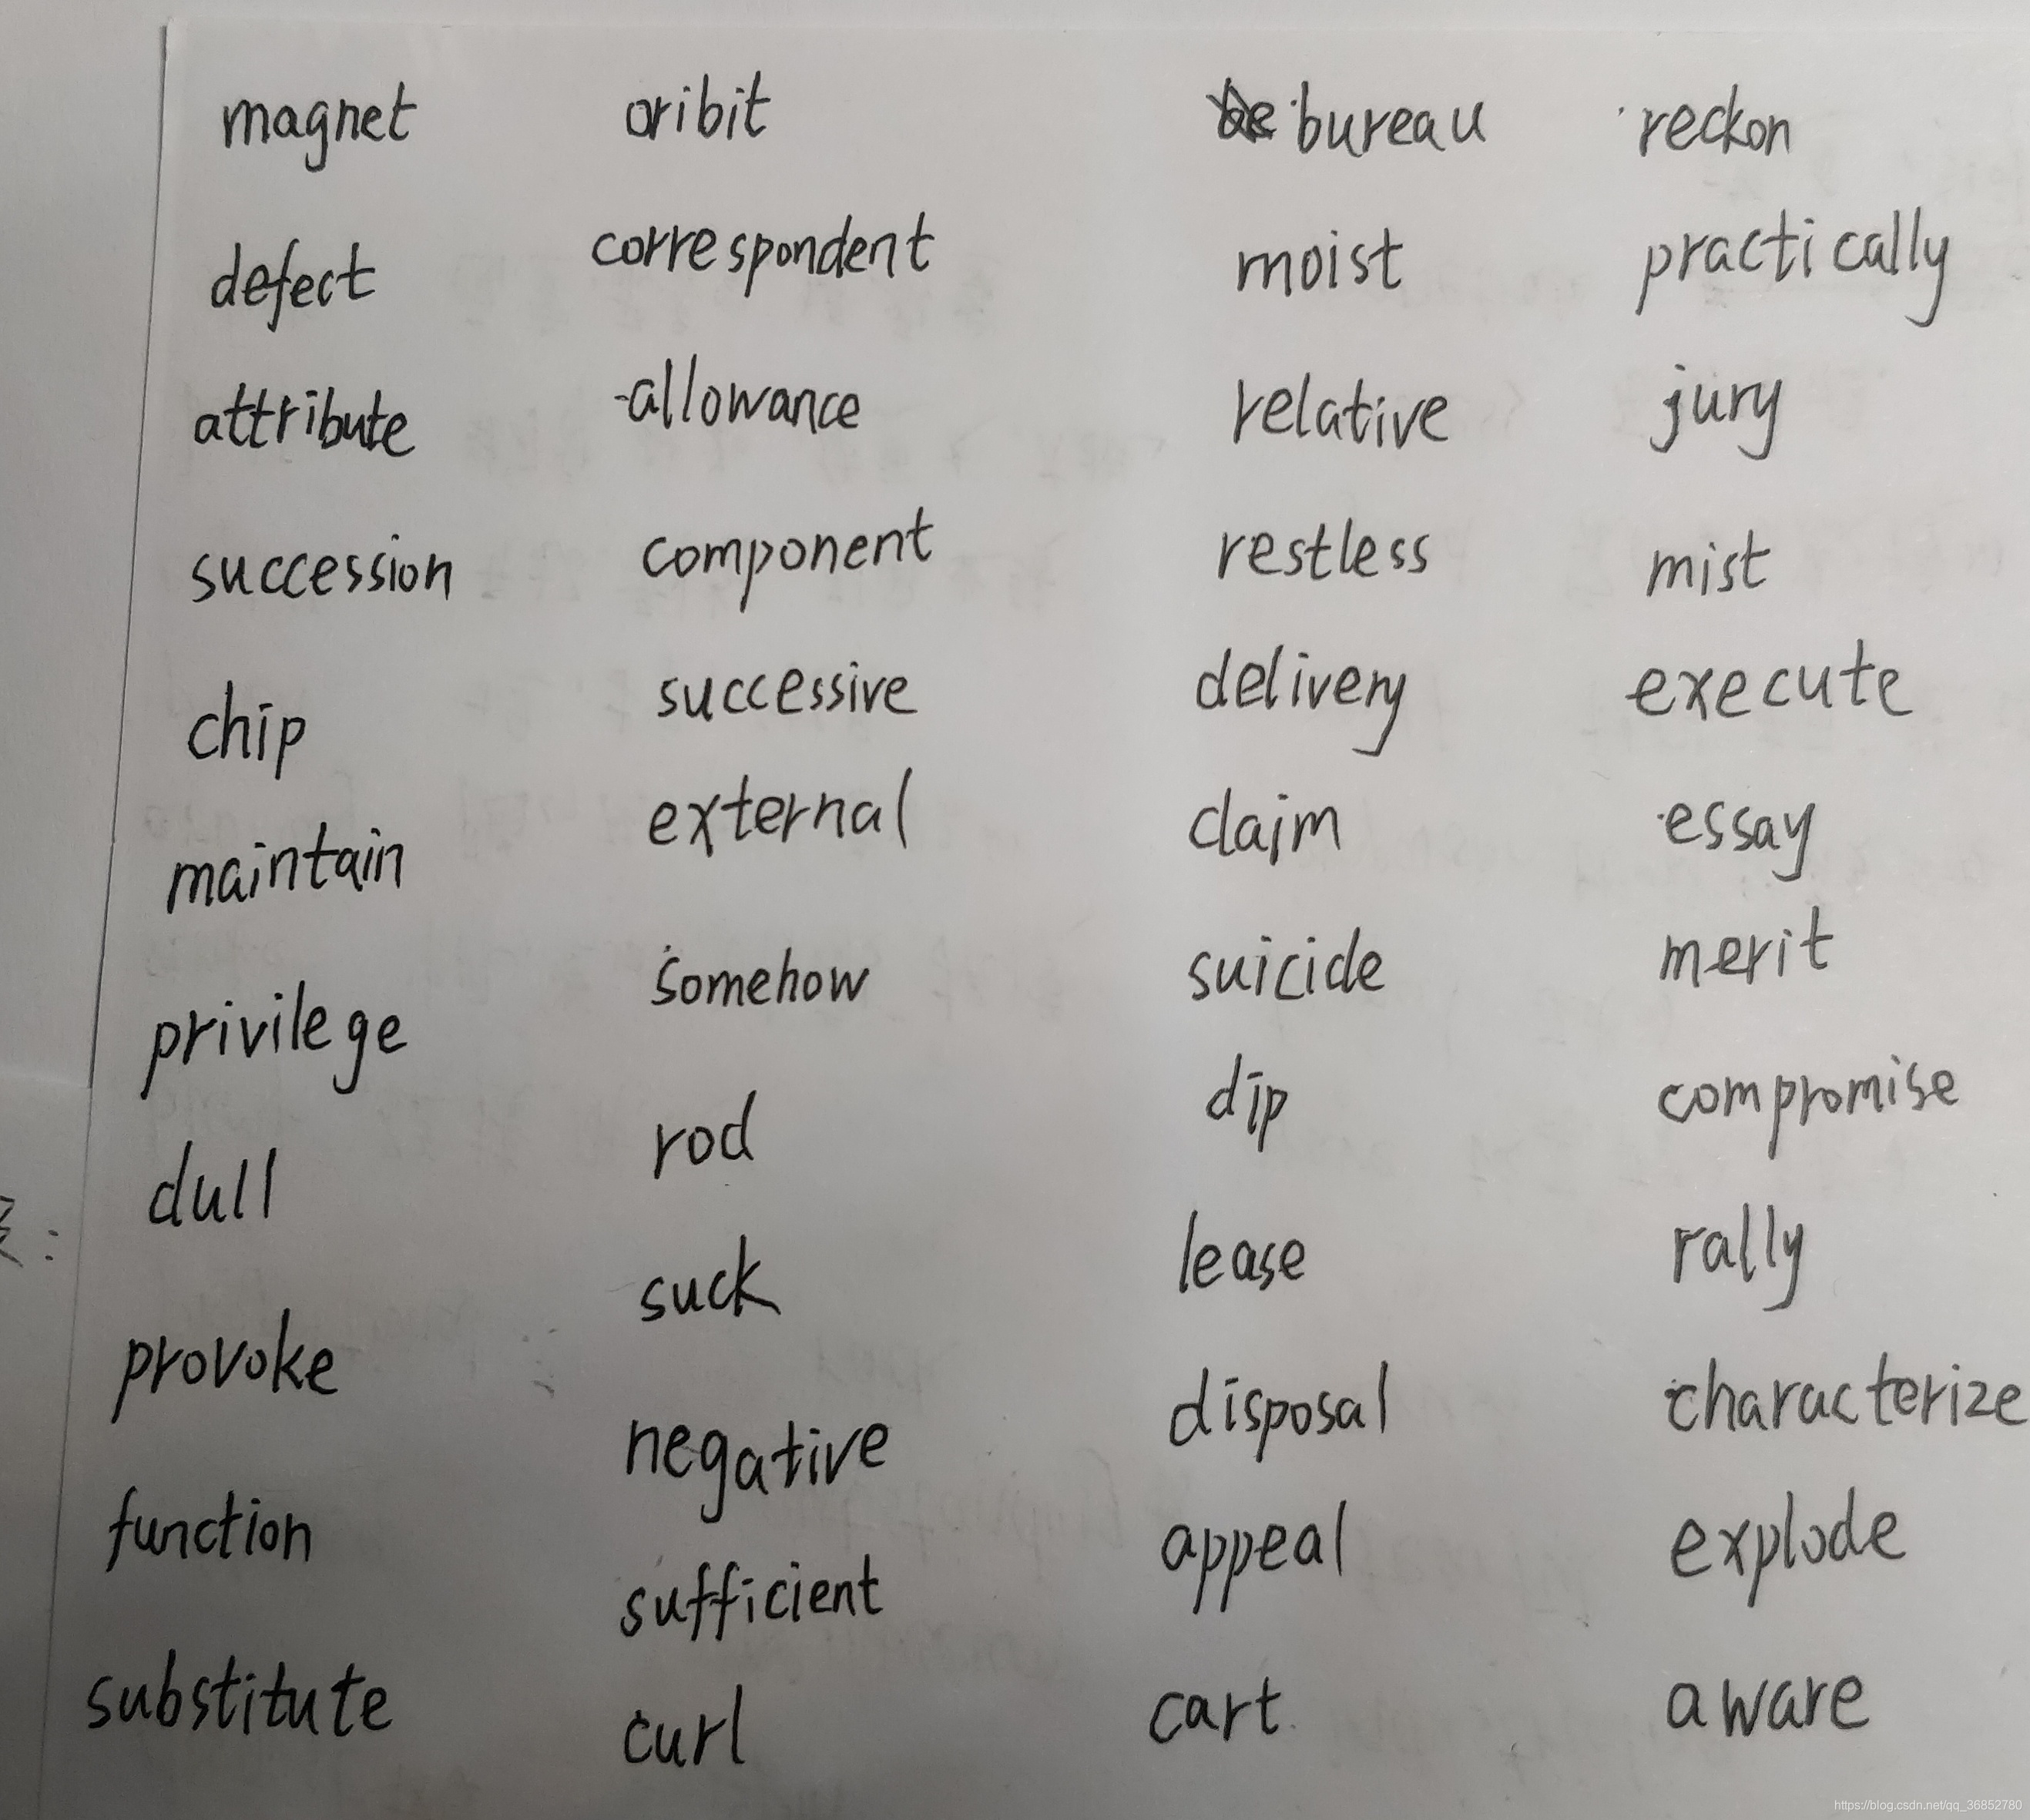 magnet oribit bureau reckon
defect correspondent moist practically
attribute allowance relative jury
succession component restless mist
chip successive delivery execute
maintain external claim essay
privilege somehow suicide merit
dull rod dip compromise
provoke suck lease rally
function negative disposal characterize
substitute sufficient appeal explode
curl cart aware
https://blog.csdn.net/qq_36852780